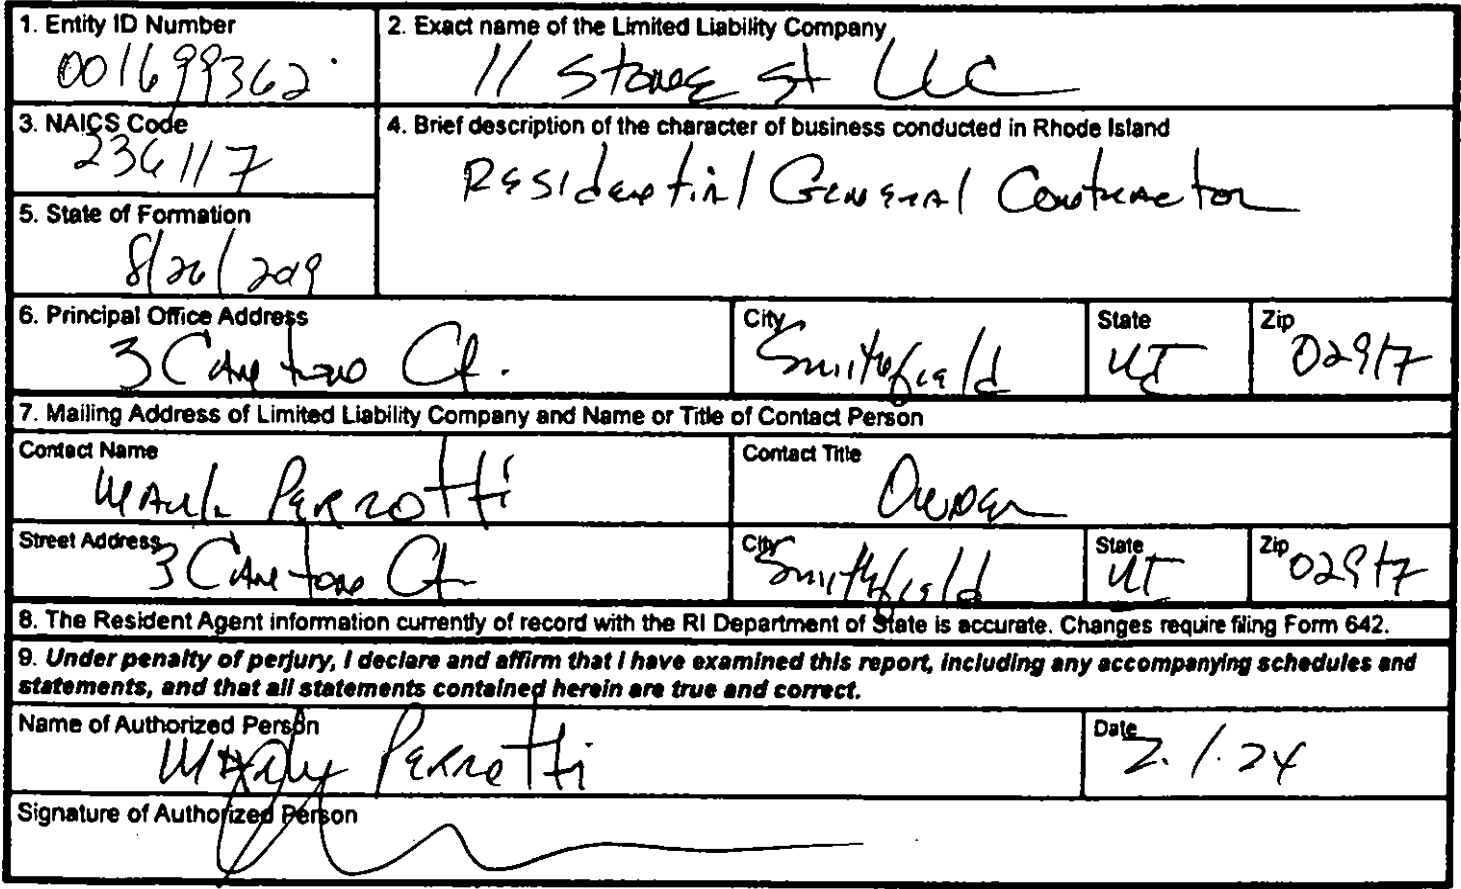 1. Entity ID Number
001699362
2. Exact name of the Limited Liability Company
11 Stone St LLC
3. NAICS Code
236117
4. Brief description of the character of business conducted in Rhode Island
Residential General Contractor
5. State of Formation
8/26/2019
6. Principal Office Address
3 Ct.
City
Smithfield
State
RI
Zip
02917
7. Mailing Address of Limited Liability Company and Name or Title of Contact Person
Contact Name
Mark Perrotti
Contact Title
Owner
Street Address
3 Ct
City
Smithfield
State
RI
Zip
02917
8. The Resident Agent information currently of record with the RI Department of State is accurate. Changes require filing Form 642.
9. Under penalty of perjury, I declare and affirm that I have examined this report, including any accompanying schedules and
statements, and that all statements contained herein are true and correct.
Name of Authorized Person
Perrotti
Date
2.1.24
Signature of Authorized Person